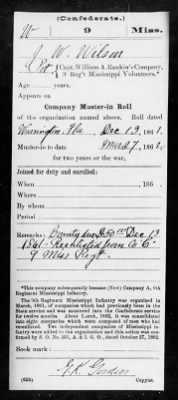 (Confederate.)
W 9 Miss.
J. W. Wilson
Pvt., Capt. William A. Rankin's Company,
9 Reg't Mississippi Volunteers.*
Age years.
Appears on
Company Muster-in Roll
of the organization named above. Roll dated
Warrington, Fla. Dec 13, 1861.
Muster-in to date 7, 186
for two years or the war.
Joined for duty and enrolled:
When , 186 .
Where
By whom
Period
Remarks: Bounty due $50 Dec 13
1861. Reenlisted from Co "C"
9 Miss Regt.
*This company subsequently became (New) Company A, 9th
Regiment Mississippi Infantry.
The 9th Regiment Mississippi Infantry was organized in
March, 1861, of companies which had previously been in the
State service and was mustered into the Confederate service
for twelve months. About March, 1862, it was consolidated
into eight companies which were composed of men who had
re-enlisted. Two independent companies of Mississippi In-
fantry were added to the organization and this action was con-
firmed by S. O. No. 251, A. & I. G. O., dated October 27, 1862.
Book mark:
(635) Copyist.